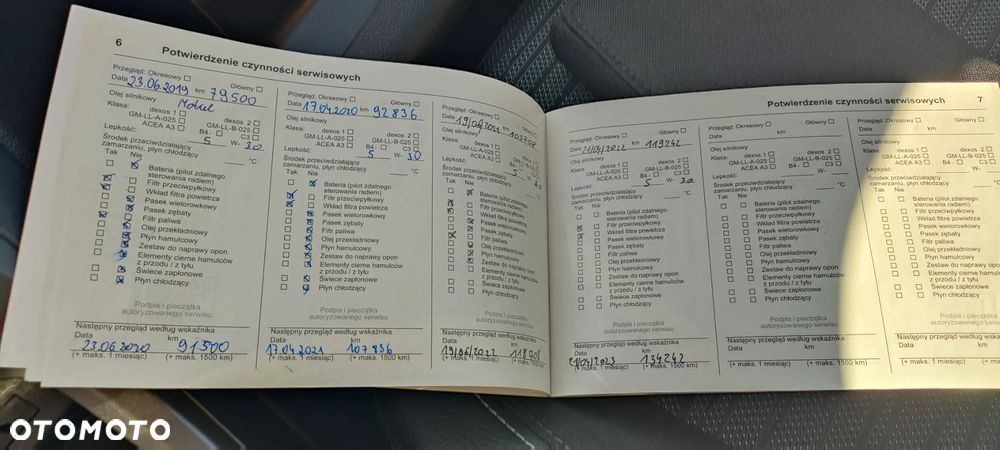 6
Potwierdzenie czynności serwisowych
Przegląd: Okresowy
Główny
Data 23.06.2019 km 79500
Olej silnikowy Motul
Klasa: dexos 1 dexos 2
GM-LL-A-025 GM-LL-B-025
ACEA A3 B4 - C3
Lepkość: 5 W- 30
Środek przeciwdziałający
zamarzaniu, płyn chłodzący °C
Tak Nie
Bateria (pilot zdalnego
sterowania radiem)
Filtr przeciwpyłkowy
Wkład filtra powietrza
Pasek wielorowkowy
Pasek zębaty
Filtr paliwa
Olej przekładniowy
Płyn hamulcowy
Zestaw do naprawy opon
Elementy cierne hamulców
z przodu / z tyłu
Świece zapłonowe
Płyn chłodzący
Podpis i pieczątka
autoryzowanego serwisu
Następny przegląd według wskaźnika
Data km
23.06.2020 91500
(+ maks. 1 miesiąc) (+ maks. 1500 km)
Przegląd: Okresowy Główny
Data 17.04.2020 km 92836
Olej silnikowy
Klasa: dexos 1 dexos 2
GM-LL-A-025 GM-LL-B-025
ACEA A3 B4 - C3
Lepkość: 5 W- 30
Środek przeciwdziałający
zamarzaniu, płyn chłodzący °C
Tak Nie
Bateria (pilot zdalnego
sterowania radiem)
Filtr przeciwpyłkowy
Wkład filtra powietrza
Pasek wielorowkowy
Pasek zębaty
Filtr paliwa
Olej przekładniowy
Płyn hamulcowy
Zestaw do naprawy opon
Elementy cierne hamulców
z przodu / z tyłu
Świece zapłonowe
Płyn chłodzący
Podpis i pieczątka
autoryzowanego serwisu
Następny przegląd według wskaźnika
Data km
17.04.2021 107836
(+ maks. 1 miesiąc) (+ maks. 1500 km)
Przegląd: Okresowy Główny
Data
Olej silnikowy
Klasa: dexos 1 dexos 2
GM-LL-A-025 GM-LL-B-025
ACEA A3 B4 - C3
Lepkość: 5
Środek przeciwdziałający
zamarzaniu, płyn chłodzący
Tak Nie
Bateria (pilot zdalnego
sterowania radiem)
Filtr przeciwpyłkowy
Wkład filtra powietrza
Pasek wielorowkowy
Pasek zębaty
Filtr paliwa
Olej przekładniowy
Płyn hamulcowy
Zestaw do naprawy opon
Elementy cierne hamulców
z przodu / z tyłu
Świece zapłonowe
Płyn chłodzący
Podpis i pieczątka
autoryzowanego serwisu
Następny przegląd według wskaźnika
Data km
19/06/2022
(+ maks. 1 miesiąc) (+ maks. 1500 km)
Potwierdzenie czynności serwisowych 7
Przegląd: Okresowy Główny
Data 21/04/2022 km 119242
Olej silnikowy
Klasa: dexos 1 dexos 2
GM-LL-A-025 GM-LL-B-025
ACEA A3 B4 - C3
Lepkość: 5 W- 30
Środek przeciwdziałający
zamarzaniu, płyn chłodzący °C
Tak Nie
Bateria (pilot zdalnego
sterowania radiem)
Filtr przeciwpyłkowy
Wkład filtra powietrza
Pasek wielorowkowy
Pasek zębaty
Filtr paliwa
Olej przekładniowy
Płyn hamulcowy
Zestaw do naprawy opon
Elementy cierne hamulców
z przodu / z tyłu
Świece zapłonowe
Płyn chłodzący
Podpis i pieczątka
autoryzowanego serwisu
Następny przegląd według wskaźnika
Data km
21/04/2023 134242
(+ maks. 1 miesiąc) (+ maks. 1500 km)
Przegląd: Okresowy Główny
Data km
Olej silnikowy
Klasa: dexos 1 dexos 2
GM-LL-A-025 GM-LL-B-025
ACEA A3 B4 - C3
Lepkość: W-
Środek przeciwdziałający
zamarzaniu, płyn chłodzący °C
Tak Nie
Bateria (pilot zdalnego
sterowania radiem)
Filtr przeciwpyłkowy
Wkład filtra powietrza
Pasek wielorowkowy
Pasek zębaty
Filtr paliwa
Olej przekładniowy
Płyn hamulcowy
Zestaw do naprawy opon
Elementy cierne hamulców
z przodu / z tyłu
Świece zapłonowe
Płyn chłodzący
Podpis i pieczątka
autoryzowanego serwisu
Następny przegląd według wskaźnika
Data km
(+ maks. 1 miesiąc) (+ maks. 1500 km)
Przegląd: Okresowy
Data km
Olej silnikowy
Klasa: dexos 1
GM-LL-A-025
ACEA A3
Lepkość:
Środek przeciwdziałający
zamarzaniu, płyn chłodzący
Tak Nie
Bateria (pilot zdalnego
sterowania radiem)
Filtr przeciwpyłkowy
Wkład filtra powietrza
Pasek wielorowkowy
Pasek zębaty
Filtr paliwa
Olej przekładniowy
Płyn hamulcowy
Zestaw do naprawy opon
Elementy cierne hamulców
z przodu / z tyłu
Świece zapłonowe
Płyn chłodzący
Podpis i pieczątka
autoryzowanego
Następny przegląd według
Data
(+ maks. 1 miesiąc)
OTOMOTO